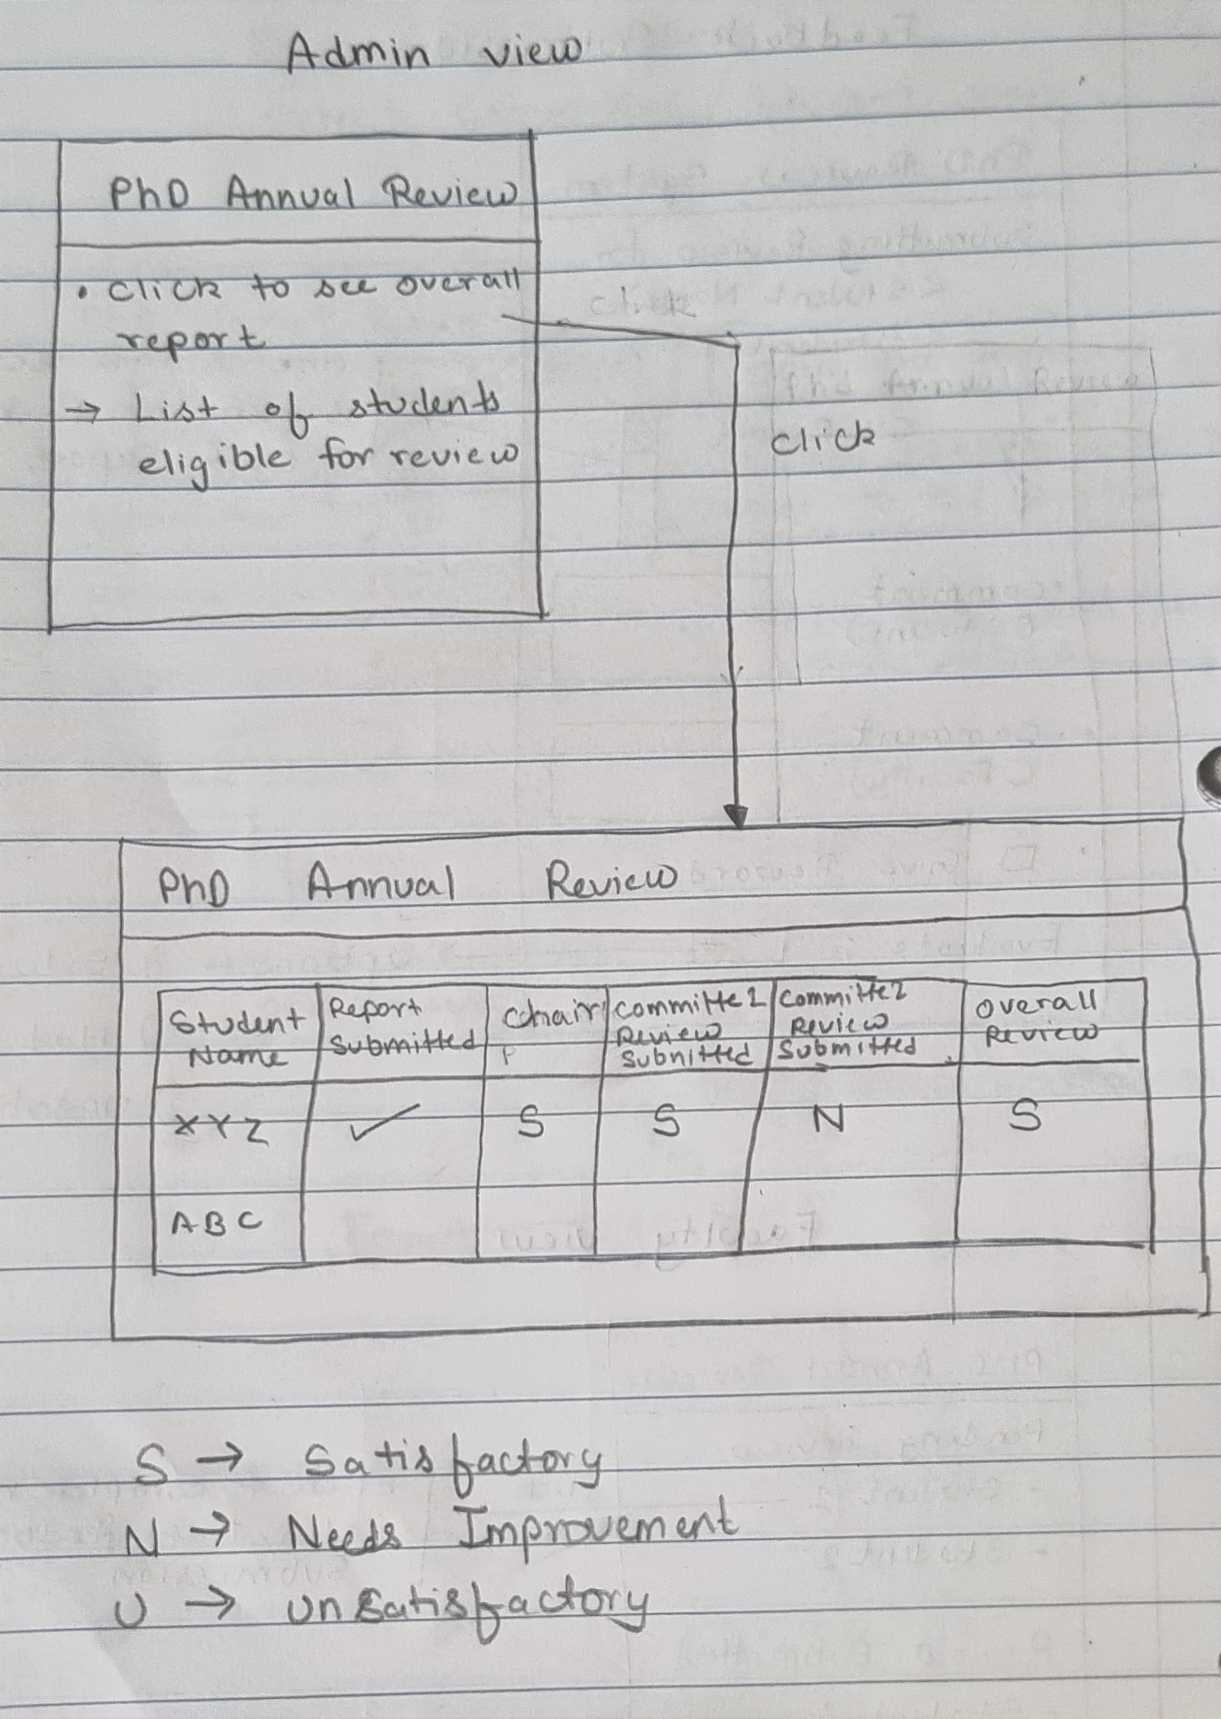 Admin view
PhD Annual Review
• Click to see overall
report
→ List of students
eligible for review
click
PhD Annual Review
Student
Name
Report
Submitted
Chair
P
Committe 1
Review
Submitted
Committe 2
Review
Submitted
Overall
Review
XYZ ✓ S S N S
ABC
S → Satisfactory
N → Needs Improvement
U → Unsatisfactory